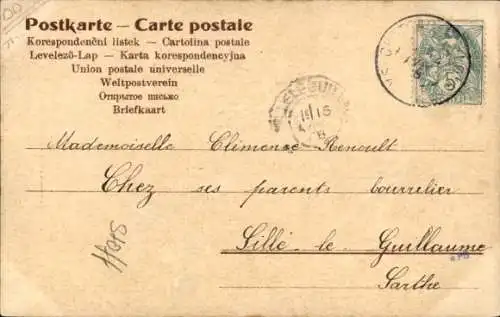 Postkarte – Carte postale
Korespondenční listek – Cartolina postale
Levelező-Lap – Karta korespondencyjna
Union postale universelle
Weltpostverein
Открытое письмо
Briefkaart
Mademoiselle Clémence Renoult
Chez ses parents bourrelier
Sillé-le-Guillaume
Sarthe